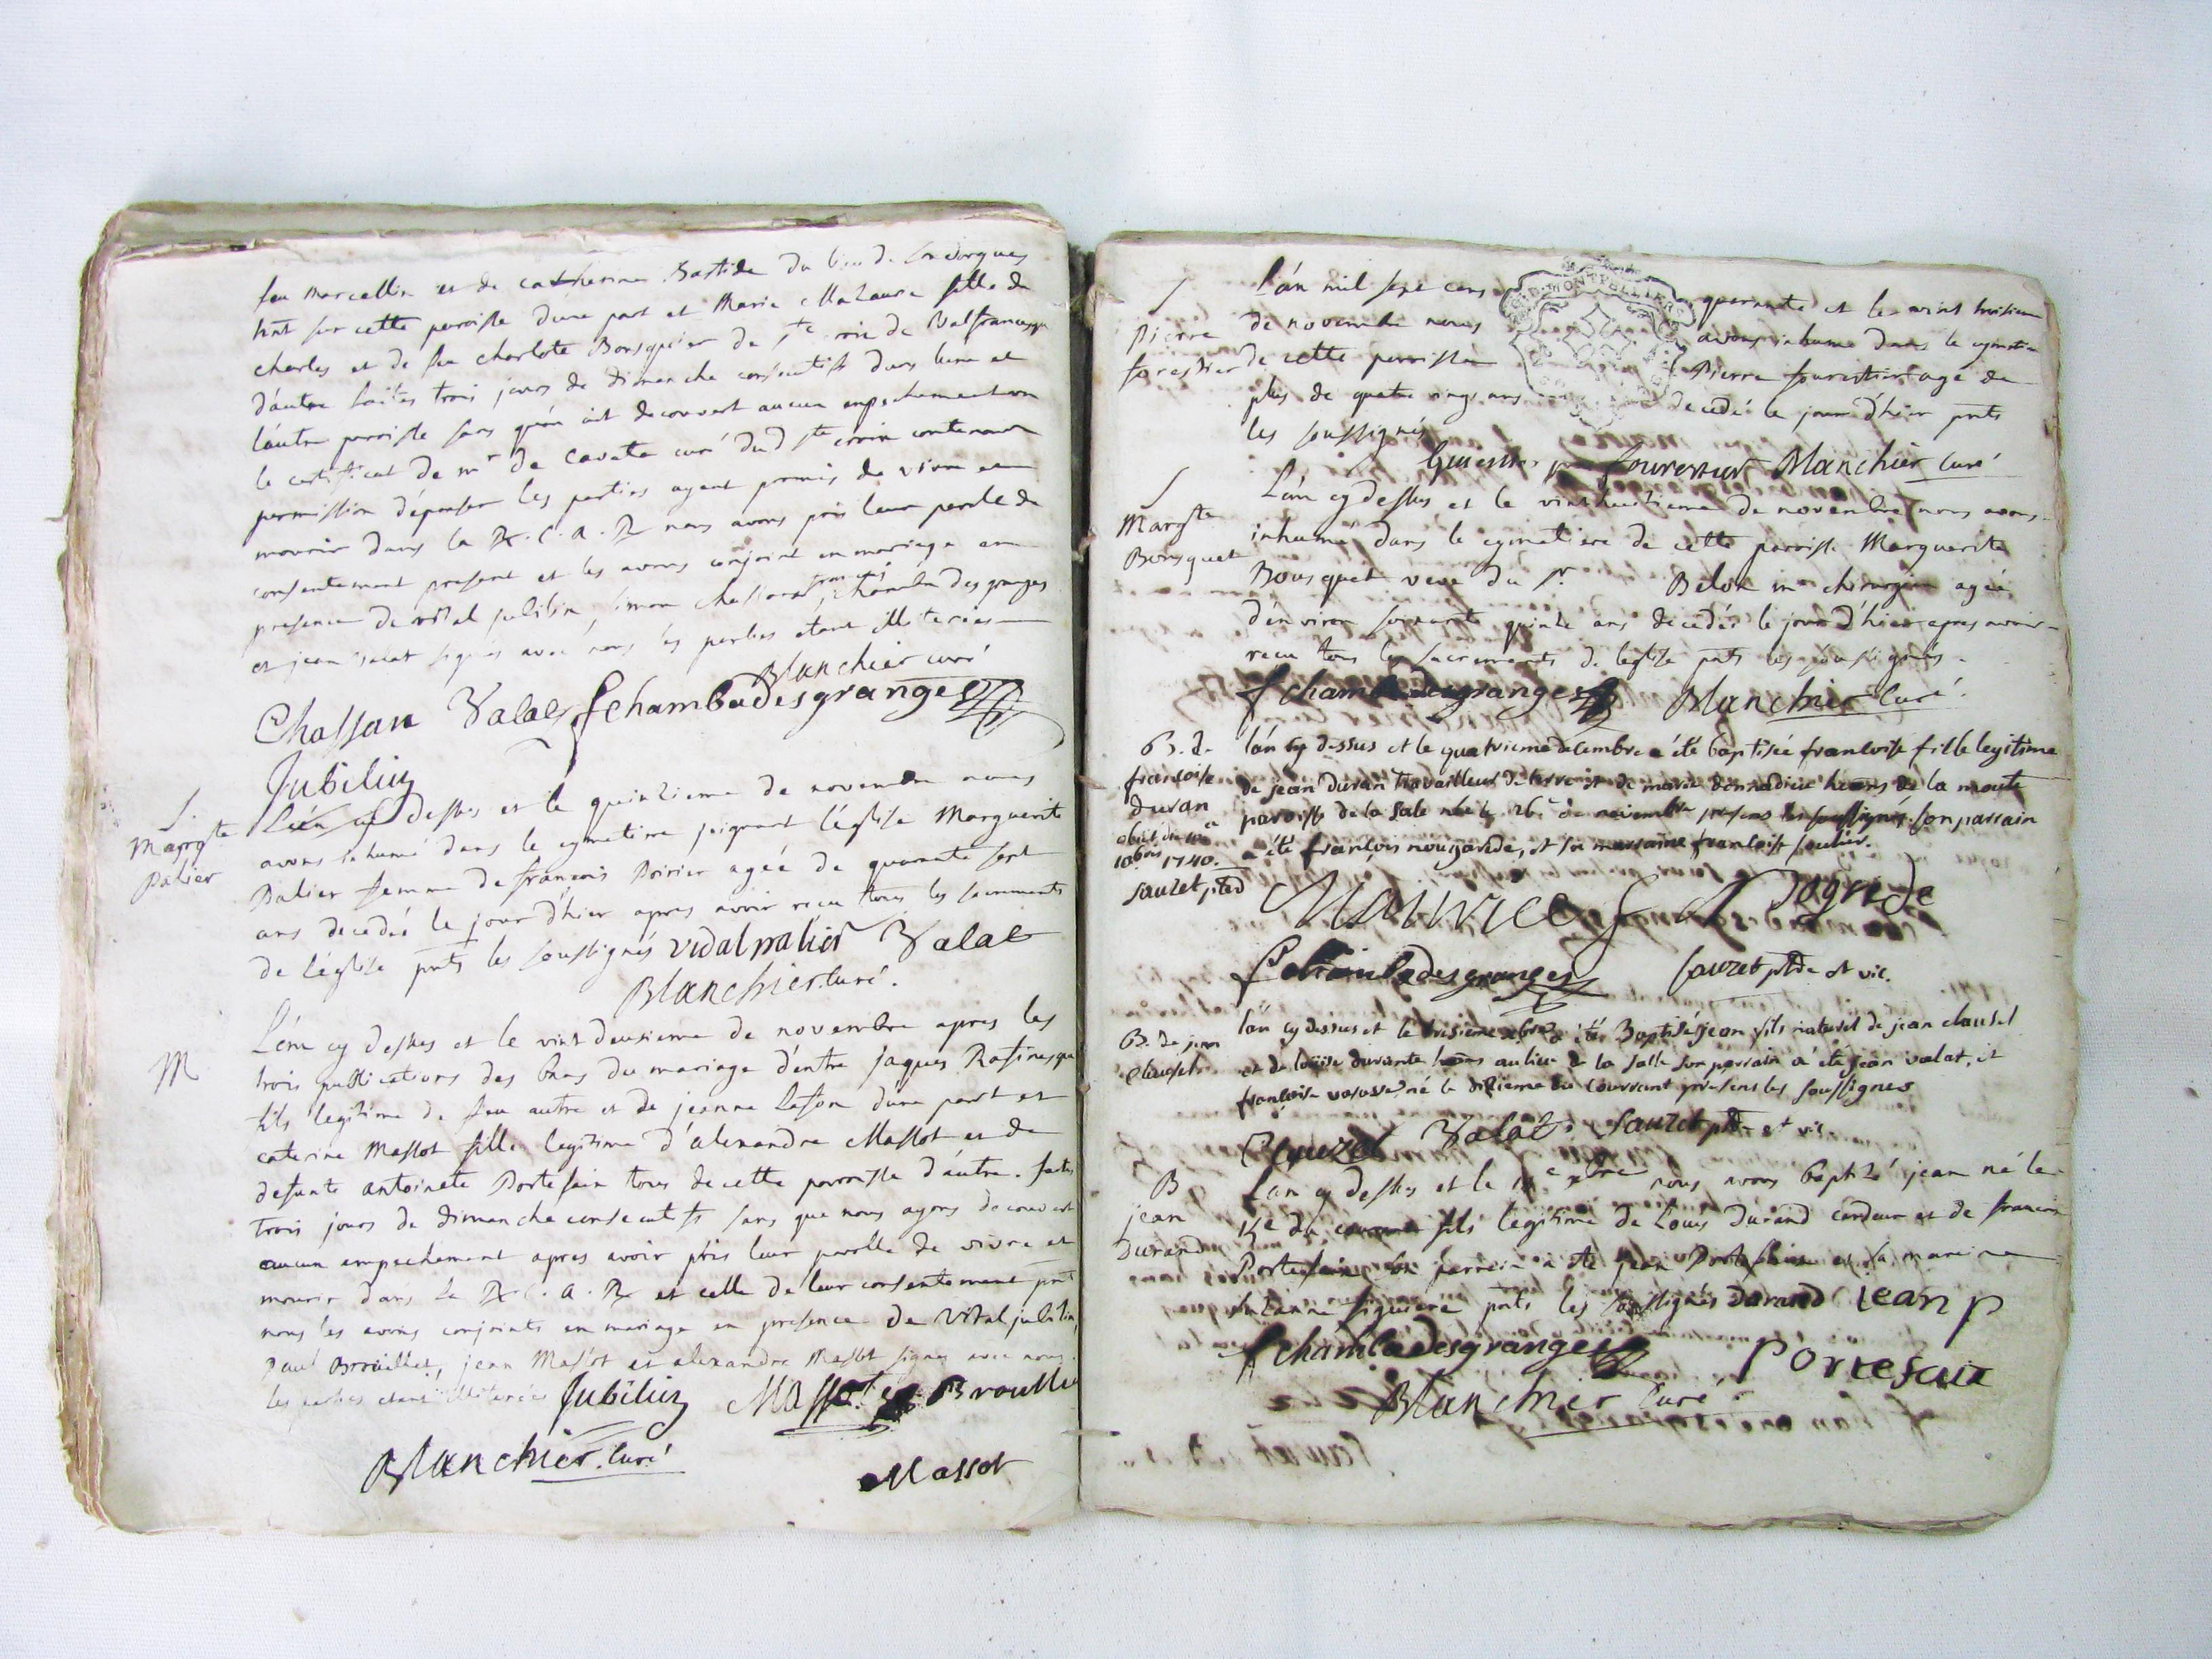 feu Marcellin et de catherine Bastide du lieu de
hnt sur cette parroisse dune part et Marie Mazaure fille de
charles et de feu charlote Bousquier de Ste de Valfrancesque
d'autre faites trois jours de dimanche consecutifs dans lune et
l'autre parroisse sans qu'on ait decouvert aucun empechement
le certificat de mr de Cavata curé dud ste contenant
permission d'epouser les parties ayant promis de vivre et
mourir dans la R. C. A. R nous avons pris leur parole de
consentement present et les avons conjoint en mariage en
presence de vidal jubilin, simon chassan, françois chamba des granges
et jean valat signés avec nous les parties etant illiterées
Blanchier curé
Chassan Valat fchambadesgranges
Jubilin
S.
Margte
Palier
L'an cy dessus et le quinzieme de novembre nous
avons inhumé dans le cymetiere joignant l'église Marguerite
Palier femme de françois Poirier agée de quarante sept
ans decedée le jour d'hier apres avoir recu tous les sacrements
de l'église pnts les soussignés vidal palier Valat
Blanchier. Curé.
M
L'an cy dessus et le vint deusieme de novembre apres les
trois publications des bans du mariage d'entre jaques Rafinesque
fils legitime de feu autre et de jeanne lafon dune part et
caterine Massot fille legitime d'alexandre Massot et de
defunte antoinete Portefaix tous de cette parroisse d'autre. faites
trois jours de dimanche consecutifs sans que nous ayons decouvert
aucun empechement apres avoir pris leur parolle de vivre et
mourir dans la R. C. A. R et celle de leur consentement pnt
nous les avons conjoints en mariage en presence de vidal jubilin,
paul Brouillet, jean Massot et alexandre Massot signes avec nous
les parties etant illiterées Jubilin Massot Brouillet
Blanchier. Curé
Massot
S
Pierre
forestier
L'an mil sept cens quarante et le vint troisieme
de novembre nous avons inhumé dans le cymetiere
de cette parroisse Pierre fourestier agé de
plus de quatre vingt ans decedé le jour d'hier pnts
les soussignés
fourestier Blanchier Curé
S
Margte
Bousquet
L'an cy dessus et le vint huitieme de novembre nous avons
inhumé dans le cymetiere de cette parroisse Marguerite
Bousquet veve du sr. Belon me chirurgien agée
d'environ soixante quinze ans decedée le jour d'hier apres avoir
recu tous les sacrements de leglise pnts les soussignés.
fchambadesgranges Blanchier Curé.
B. de
francoise
duran
10bre 1740.
Sauzet ptre
l'an cy dessus et le quatrieme decembre a été baptisée francoise fille legitime
de jean duran travailleur de terre et de marie donnadieu hans de la moute
paroisse de la Sale née le 26e de novembre presens les soussignés. son parrain
a été françois nougarede, et sa marraine francoise soulier.
Maurice f Nogarede
fchambadesgranges Sauzet ptre et vic.
B. de jean
clausel.
l'an cy dessus et le tresieme xbre a été Baptisé jean fils naturel de jean clausel
et de louise durante hans au lieu de la salle son parrain a été jean valat, et
françoise né le dizieme du courrant présens les soussignes
Clauzel Valat Sauzet ptre et vic
B
jean
Durand
L'an cy dessus et le xbre nous avons baptizé jean né le
15e du courant fils legitime de Louis Durand cardeur et de francoise
Portefaix son parrein a été jean Portefaix et sa mareine
suzanne figuiere pnts les soussignés durand jean p
fchambadesgranges Portefaix
Blanchier Curé